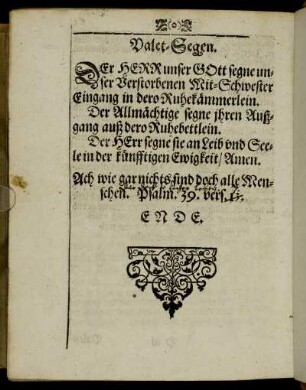 Valet-Segen.
DEr HERR unser GOtt segne un-
ser Verstorbenen Mit-Schwester
Eingang in dero Ruhekämmerlein.
Der Allmächtige segne ihren Auß-
gang auß dero Ruhebettlein.
Der HErr segne sie an Leib vnd See-
le in der künfftigen Ewigkeit / Amen.
Ach wie gar nichts sind doch alle Men-
schen. Psalm. 39. vers.
ENDE.